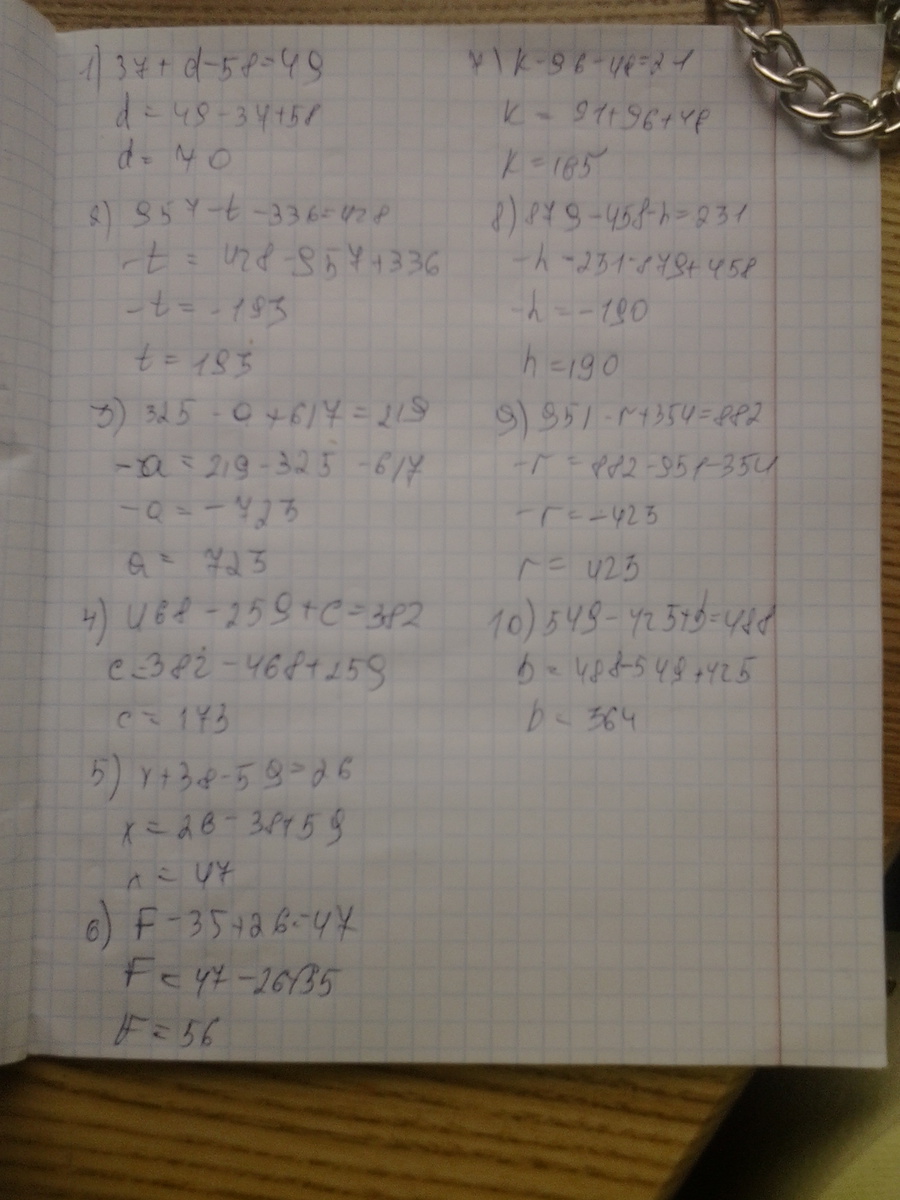 1) 37+d-58=49
d=49-37+58
d=70
2) 957-t-336=428
-t=428-957+336
-t=-193
t=193
3) 325-a+617=219
-a=219-325-617
-a=-723
a=723
4) 468-259+c=382
c=382-468+259
c=173
5) x+38-59=26
x=26-38+59
x=47
6) F-35+26=47
F=47-26+35
F=56
7) k-96-48=21
k=21+96+48
k=165
8) 879-458-h=231
-h=231-879+458
-h=-190
h=190
9) 951-r+354=882
-r=882-951-354
-r=-423
r=423
10) 549-425+b=488
b=488-549+425
b=364